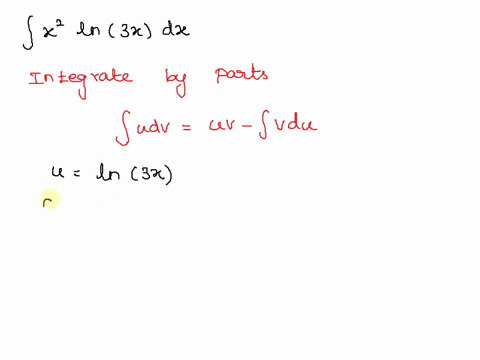 ∫ x² ln (3x) dx
Integrate by parts
∫ u dv = uv − ∫ v du
u = ln (3x)